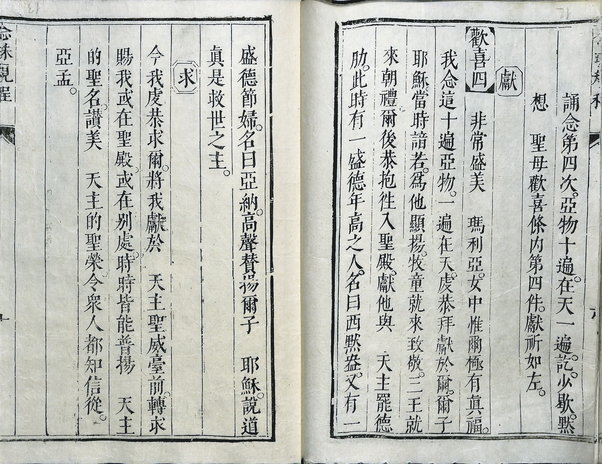 誦念第四次。亞物十遍。在天一遍。訖。少歇。黙
想　聖母歡喜條内第四件。獻祈如左。
獻
歡喜四　非常盛美　瑪利亞。女中惟爾極有真福。
我念這十遍亞物。一遍在天。虔恭拜獻於爾。爾子
耶穌當時諳若。爲他顯揚。牧童就來致敬。三王就
來朝禮。爾後恭抱徃入聖殿。獻他與　天主罷德
肋。此時有一盛德年高之人。名曰西黙盎。又有一
盛德節婦。名曰亞納。高聲賛揚爾子　耶穌。說道
真是救世之主。
求
今我虔恭求爾。將我獻於　天主聖威臺前。轉求
賜我或在聖殿。或在别處。時時皆能普揚　天主
的聖名。讃美　天主的聖榮。令衆人都知信從。
亞孟。
念珠規程